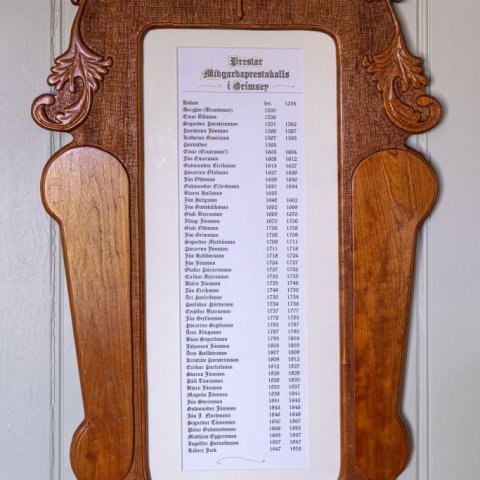 Prestar
Miðgarðaprestakalls
í Grímsey
Hákon fyr. 1254
Bergþór (Brandsson) 1320
Einar Úlfsson 1326
Sigurður Þorsteinsson 1351 1362
Þorsteinn Jónsson 1386 1387
1387 1393
Þorvaldur 1393
Einar (Einarsson?) 1603 1604
Jón Einarsson 1608 1612
Guðmundur Eiríksson 1613 1627
Þórarinn Ólafsson 1627 1629
Jón Oddsson 1629 1630
Guðmundur Erlendsson 1631 1634
Bjarni Hallsson 1635
Jón Helgason 1648 1662
Jón Gottskálksson 1662 1669
Gísli Bjarnason 1669 1670
Illugi Jónsson 1670 1706
Gísli Oddsson 1706 1706
Jón Grímsson 1706 1709
Sigurður Markússon 1709 1711
Þórarinn Jónsson 1711 1716
Jón Halldórsson 1716 1724
Jón Jónsson 1724 1727
Ólafur Þórarinsson 1727 1732
Eiríkur Bjarnason 1733 1735
Björn Jónsson 1735 1746
Jón Eiríksson 1746 1750
Ari Þorleifsson 1750 1754
Þorlákur Þórðarson 1754 1756
Eyjólfur Bjarnason 1757 1777
Jón Sveinsson 1778 1783
Þórarinn Sigfússon 1783 1787
Árni Illugason 1787 1795
Búas Sigurðsson 1795 1803
Jóhannes Jónsson 1803 1805
Árni Halldórsson 1807 1809
Kristján Þorsteinsson 1809 1812
Eiríkur Þorleifsson 1812 1827
Sveinn Jónsson 1828 1828
Páll Tómasson 1828 1835
Björn Jónsson 1835 1837
Magnús Jónsson 1838 1841
Jón Sveinsson 1841 1843
Guðmundur Jónsson 1843 1846
Jón J. Norðmann 1846 1849
Sigurður Tómasson 1850 1867
Pétur Guðmundsson 1868 1895
Matthías Eggertsson 1895 1937
Ingólfur Þorvaldsson 1937 1947
Róbert Jack 1947 1953